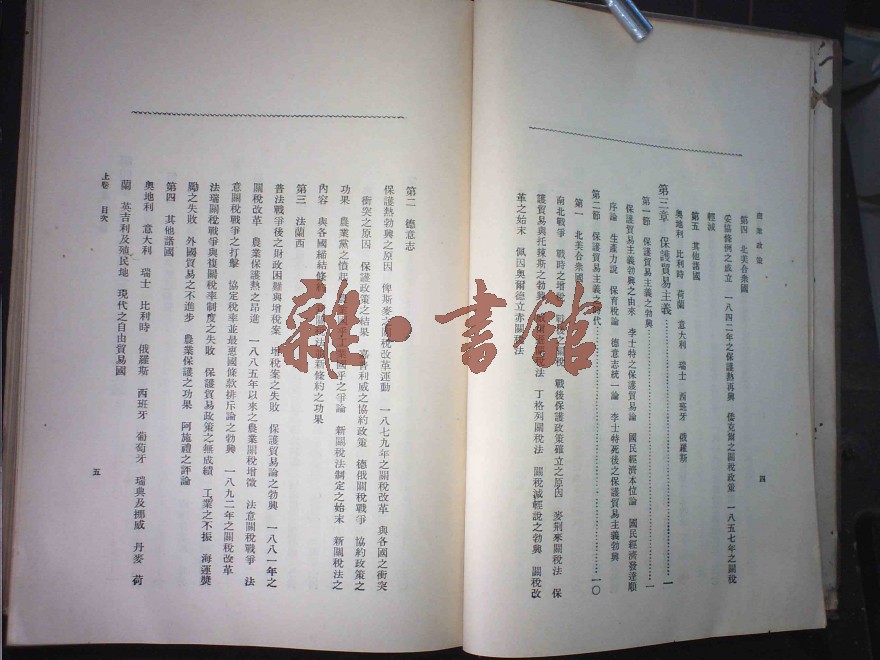 商業政策
四
第四 北美合衆國
妥協條例之成立 一八四二年之保護熱再興 倭克爾之關稅政策 一八五七年之關稅
輕減
第五 其他諸國
奧地利 比利時 荷蘭 意大利 瑞士 西班牙 俄羅斯
第三章 保護貿易主義……一
第一節 保護貿易主義之勃興……一
保護貿易主義勃興之由來 李士特之保護貿易論 國民經濟本位論 國民經濟發達順
序論 生產力說 保育稅論 德意志統一論 李士特死後之保護貿易主義勃興
第二節 保護貿易主義之時代……一〇
第一 北美合衆國
南北戰爭 戰時之增稅 戰後之關稅 戰後保護政策確立之原因 麥荆來關稅法 保
護貿易與托辣斯之勃興 丁格列關稅法 關稅減輕說之勃興 關稅改
革之始末 佩因奧爾德立赤關稅法
第二 德意志
保護熱勃興之原因 俾斯麥之關稅改革運動 一八七九年之關稅改革 與各國之衝突
衝突之原因 保護政策之結果 嘉普利威之協約政策 德俄關稅戰爭 協約政策之
功果 農業黨之憤起 工業國乎之爭論 新關稅法制定之始末 新關稅法之
內容 與各國締結條約 新條約之功果
第三 法蘭西
普法戰爭後之財政困難與增稅案 增稅案之失敗 保護貿易論之勃興 一八八一年之
關稅改革 農業保護熱之昂進 一八八五年以來之農業關稅增徵 法意關稅戰爭 法
意關稅戰爭之打擊 協定稅率並最惠國條款排斥論之勃興 一八九二年之關稅改革
法瑞關稅戰爭與複關稅率制度之失敗 保護貿易政策之無成績 工業之不振 海運獎
勵之失敗 外國貿易之不進步 農業保護之功果 阿施禮之評論
第四 其他諸國
奧地利 意大利 瑞士 比利時 俄羅斯 西班牙 葡萄牙 瑞典及挪威 丹麥 荷
蘭 英吉利及殖民地 現代之自由貿易國
上卷 目次
五
雜·書館